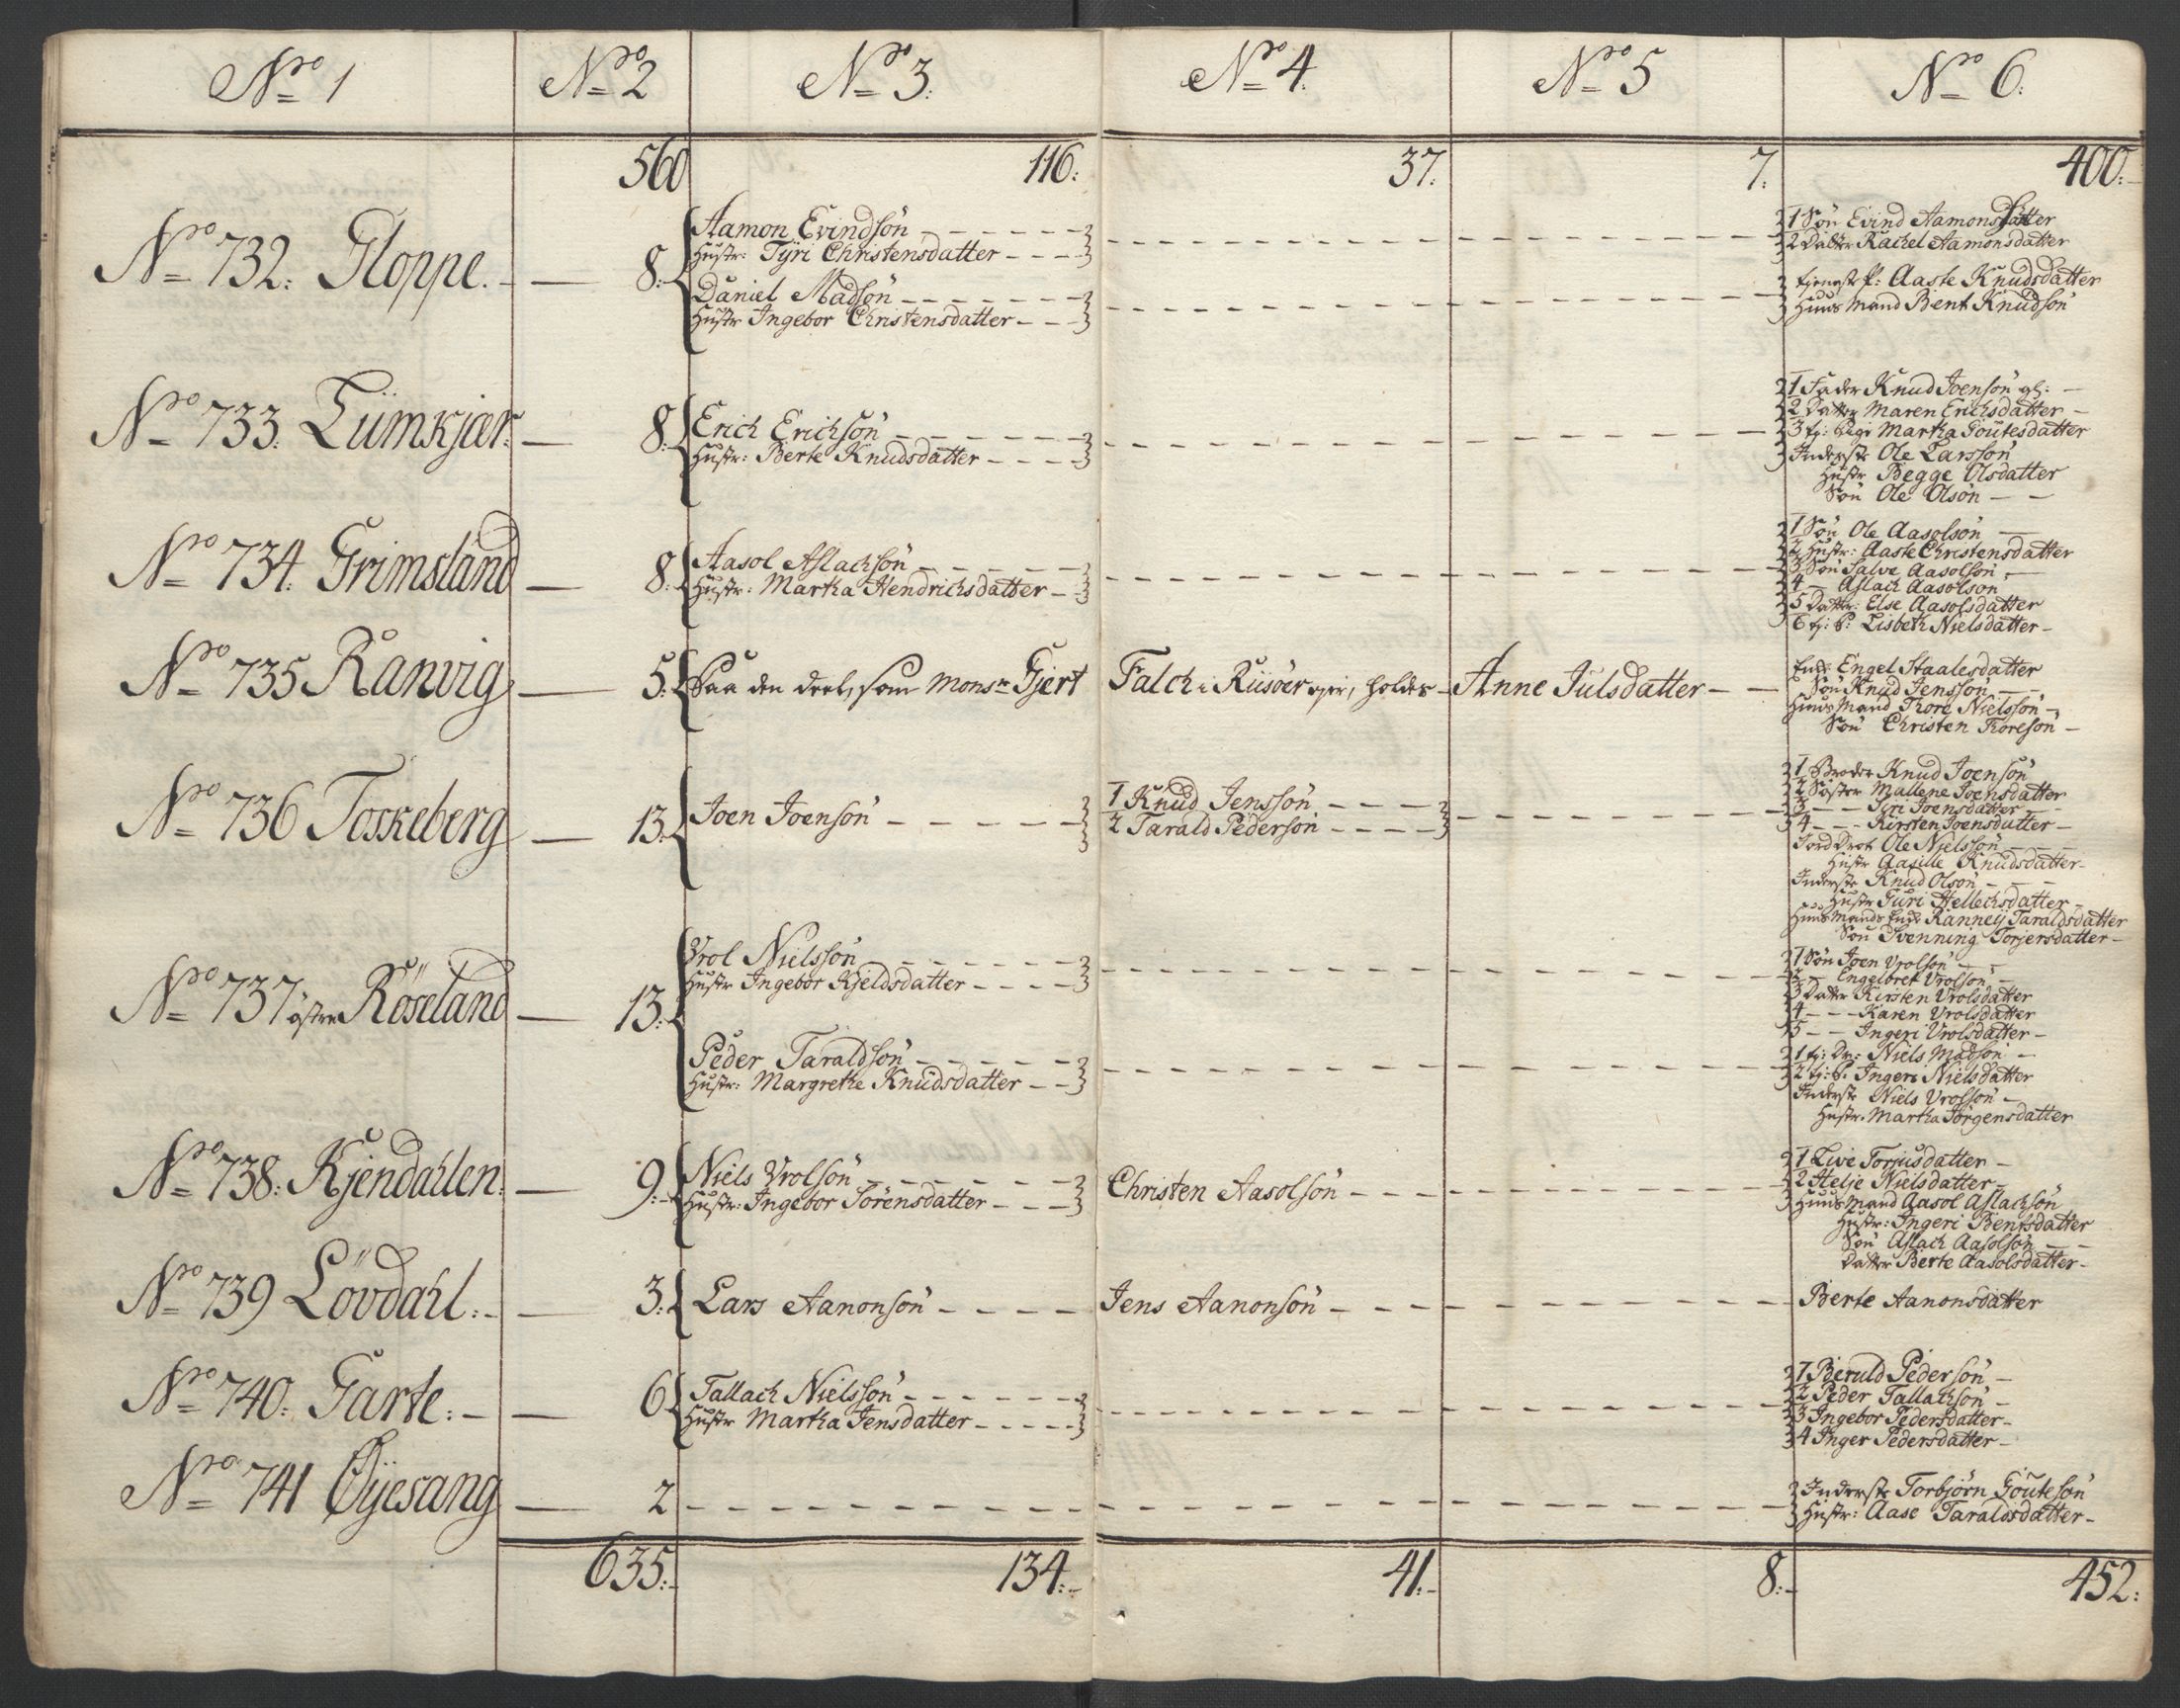 Nro 1 Nro 2 Nro 3: Nro 4: Nro 5 Nro 6:
560 116: 37: 7: 400:
Nro 732: Gloppe. 8:
Aamon Evindsøn
Hustr: Tÿri Christensdatter
Daniel Madsøn
Hustr Ingebor Christensdatter
1 Søn Evind Aamons
2 Datter Rachel Aamonsdatter
tjenestP: Aaste Knudsdatter
HuusMand Bent Knudsøn
Nro 733: Lümkjær: 8:
Erich Erichsøn
Hustr: Berte Knudsdatter
1 Fader Knud Joensøn gl:
2 Datter Maren Erichsdatter
3 tj: Pige Martha Goutesdatter
Inderste Ole Larssøn
Hustr Begge Olsdatter
Søn Ole Olsøn
Nro 734: Grimsland 8:
Aasol Aslachsøn
Hustr: Martha Hendrichsdatter
1 Søn Ole Aasolsøn
2 Hustr: Aaste Christensdatter
3 Søn Salve Aasolsøn
4 - Aslach Aasolsøn
5 Datter: Else Aasolsdatter
6 tj: P: Lisbeth Nielsdatter
Nro 735 Ranvig 5:
Paa den deel, som Monsr Gjert Falch i Riisøer ejer, holdes Anne Julsdatter
Enke: Engel Staalesdatter
Søn Knud Jenssøn
HuusMand Thore Nielssøn
Søn Christen Thoresøn
Nro 736 Toskeberg 13:
Joen Joensøn
1 Knud Jenssøn
2 Tarald Pedersøn
1 Broder Knud Joensøn
2 Søster Mallene Joensdatter
3 - - Siri Joensdatter
4 - - Kirsten Joensdatter
Jorddrot Ole Nielssøn
Hustr Aasille Knudsdatter
Inderste Knud Olsøn
Hustr Guri Hellechsdatter
HuusMands Enke Ranneÿ Taraldsdatter
Søn Svenning Torjersdatter
Nro 737 østre Røseland 13:
Vrol Nielssøn
Hustr Ingebor Kjeldsdatter
Peder Taraldsøn
Hustr: Margrethe Knudsdatter
1 Søn Joen Vrolsøn
2 - Engelbret Vrolsøn
3 Datter Kirsten Vrolsdatter
4 - - - Karen Vrolsdatter
5 - - Ingeri Vrolsdatter
1 tj: Dr: Niels Madsøn
2 tj: P: Ingeri Nielsdatter
Inderste Niels Vrolsøn
Hustr. Martha Jørgensdatter
Nro 738: Kjendahlen: 9:
Niels Vrolsøn
Hustr: Ingebor Sørensdatter
Christen Aasolsøn
1 Live Torjusdatter
2 Helje Nielsdatter
HuusMand Aasol Aslachsøn
Hustr: Ingeri Bentsdatter
Søn Aslach Aasolsøn
Datter Berte Aasolsdatter
Nro 739 Løvdahl: 3:
Lars Aanonsøn
Jens Aanonsøn
Berte Aanonsdatter
Nro 740: Garte: 6
Tallach Nielssøn
Hustr Martha Jensdatter
1 Beruld Pedersøn
2 Peder Tallachsøn
3 Ingebor Pedersdatter
4 Inger Pedersdatter
Nro 741 Øÿesang 2
Inderste Torbjørn Goutesøn
Hustr: Aase Taraldsdatter
635: 134: 41: 8: 452: